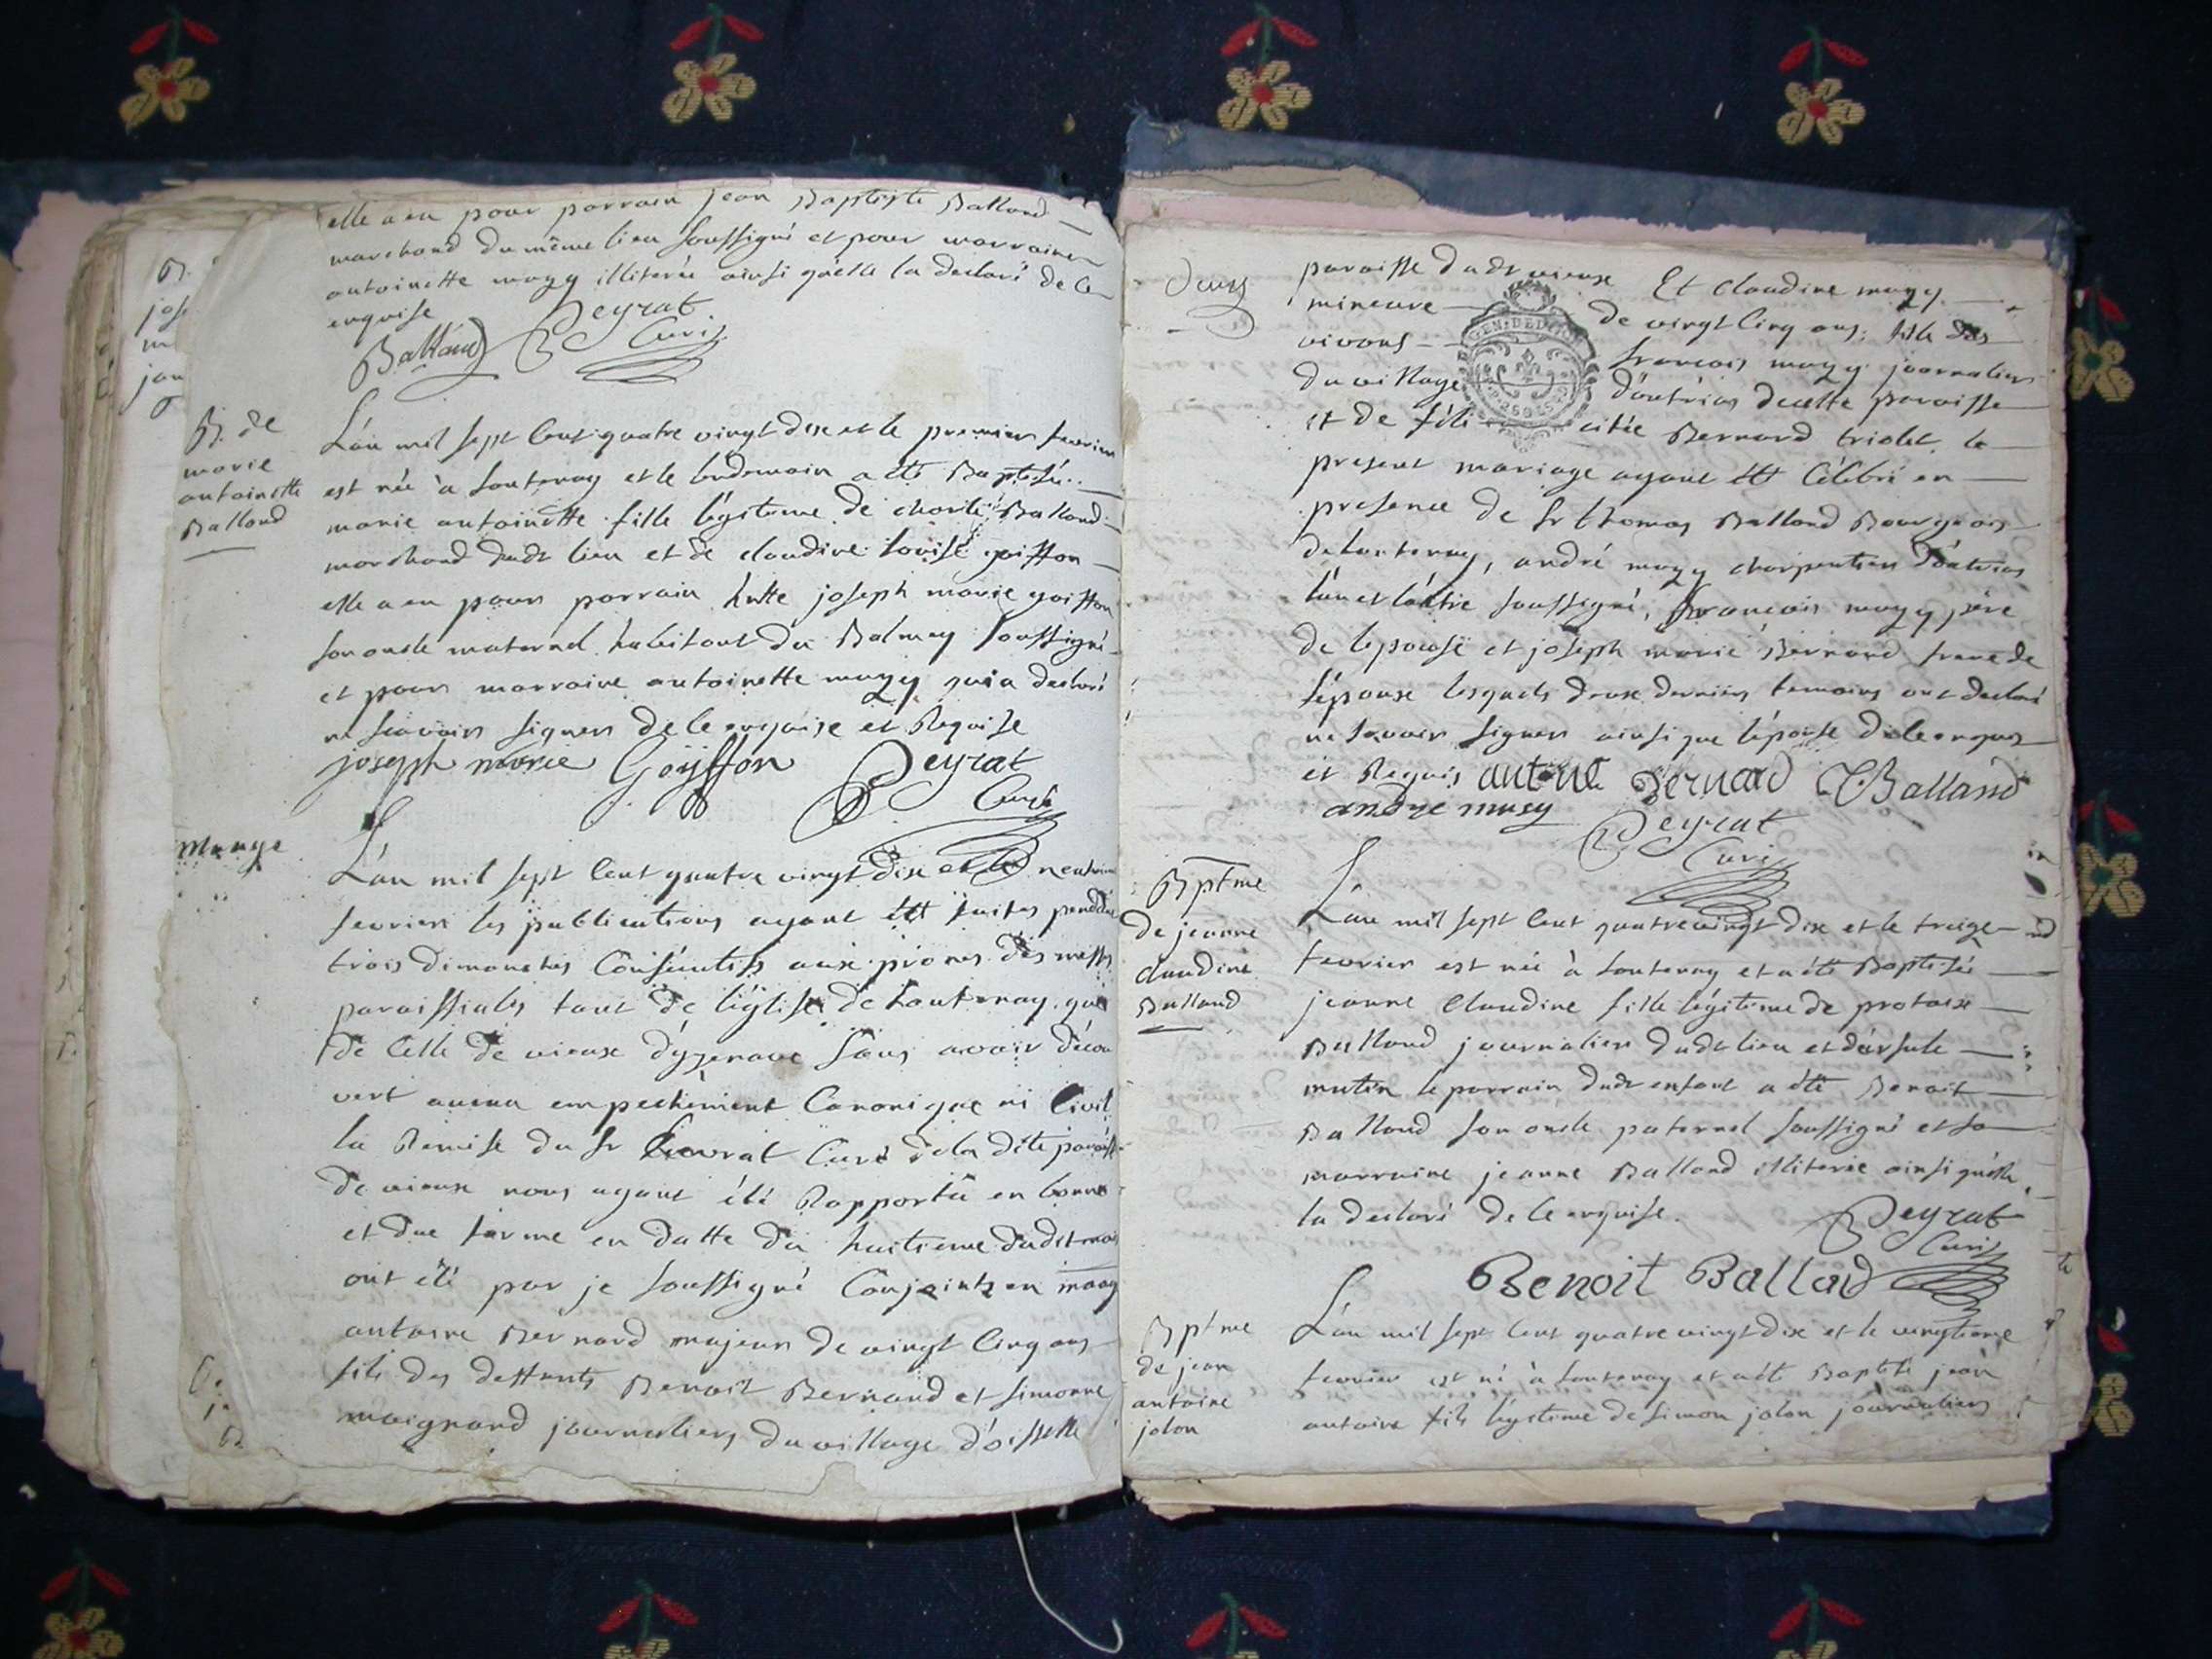 elle a eu pour parrain jean Baptiste Balland
marchand du même lieu soussigné et pour marraine
antoinette mugy illiterée ainsi qu'elle la declaré de ce
enquise
Balland Peyrat
Curé
B. de
marie
antoinette
Balland
L'an mil sept cent quatre vingt dix et le premier fevrier
est née à lantenay et le lendemain a été Baptisée
marie antoinette fille légitime de charle Balland
marchand dudt lieu et de claudine louise goiffon
elle a eu pour parrain joseph marie goiffon
son oncle maternel habitant du Balmay soussigné
et pour marraine antoinette mugy qui a declaré
ne scavoir signer de ce enquise et Requise
joseph marie Goÿffon Peyrat
Curé
Mariage
L'an mil sept cent quatre vingt dix et le neuvieme
fevrier les publications ayant été faites pendant
trois dimanches consécutifs aux prones des messes
paroissiales tant de l'église de lantenay que
de celle de vieux d'yzenave sans avoir décou
vert aucun empechement Canonique ni Civil
la Remise du sr curé de la dite paroisse
de vieux nous ayant été Rapportée en bonne
et due forme en datte du huitieme dudit mois
ont été par je soussigné Conjoints en mariage
antoine Bernard majeur de vingt cinq ans
fils des deffunts Benoit Bernard et simonne
maignard journaliers du village d'oisselle
paroisse dudt vieux Et claudine mugy
mineure de vingt cinq ans, fille des
vivans françois mugy journalier
du village d'outriaz de cette paroisse
et de féli cité Bernard triolet le
present mariage ayant été célébré en
presence de sr thomas Balland Bourgeois
de lantenay, andré mugy charpentier d'outriaz
l'un et l'autre soussigné, françois mugy père
de l'epouse et joseph marie Bernard frere de
l'époux lesquels deux derniers temoins ont declaré
ne savoir signer ainsi que l'épouse de ce enquis
et Requis antoine Bernard T Balland
andre musy Peyrat
Curé
Bptme
de jeanne
claudine
Balland
L'an mil sept cent quatre vingt dix et le treize
fevrier est née à lantenay et a été Baptisée
jeanne Claudine fille légitime de protaix
Balland journalier dudt lieu et d'ursule
mutin le parrain dudt enfant a été Benoit
Balland son oncle paternel soussigné et sa
marraine jeanne Balland illiterée ainsi qu'elle
la declaré de ce enquise. Peyrat
Curé
Benoit Ballad
Bptme
de jean
antoine
jolon
L'an mil sept cent quatre vingt dix et le vingtieme
fevrier est né à lantenay et a été Baptisé jean
antoine fils légitime de simon jolon journalier